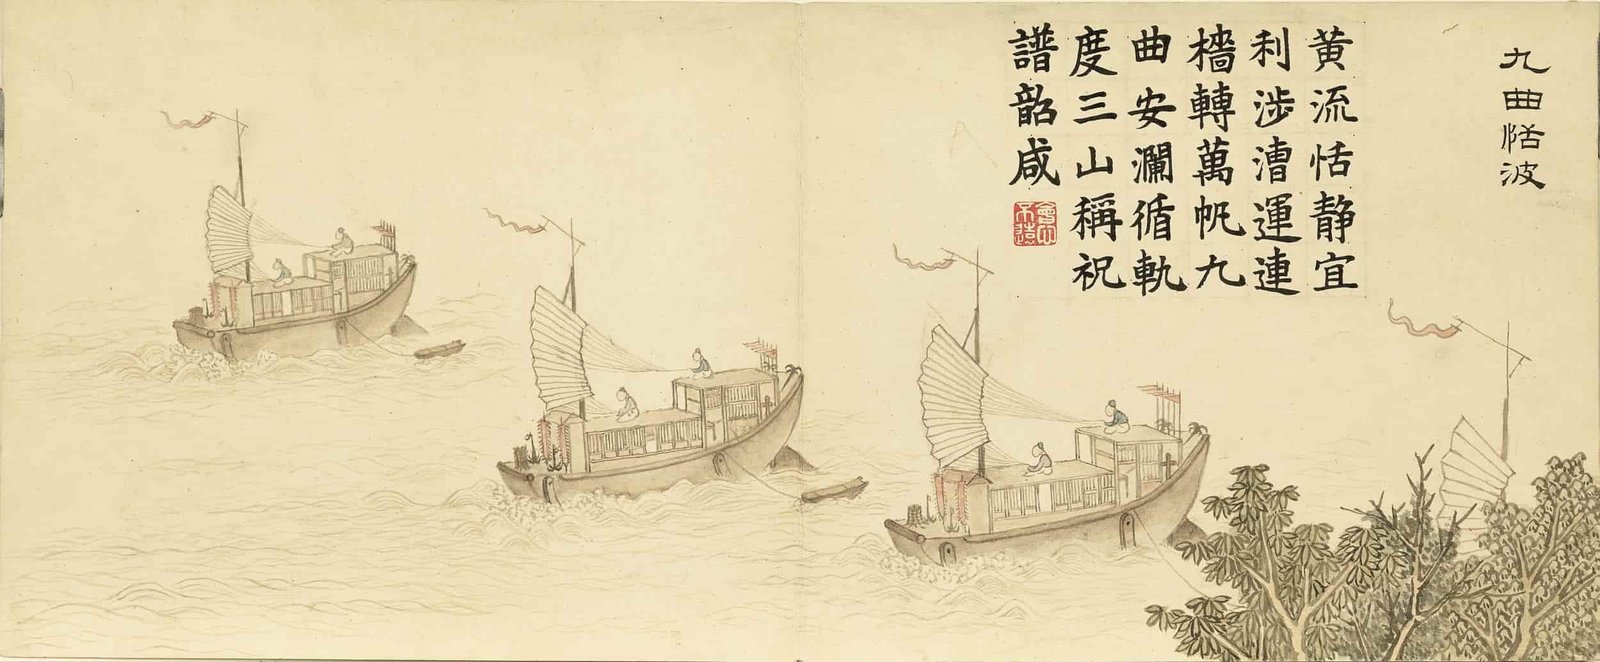 九曲恬波
黄流恬静宜
利涉漕運連
檣轉萬帆九
曲安瀾循軌
度三山稱祝
譜韶咸